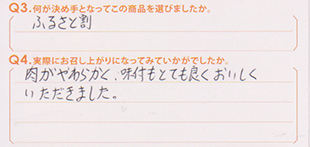 Q3.何が決め手となってこの商品を選びましたか。
ふるさと割
Q4.実際にお召し上がりになってみていかがでしたか。
肉がやわらかく、味付もとても良くおいしく
いただきました。